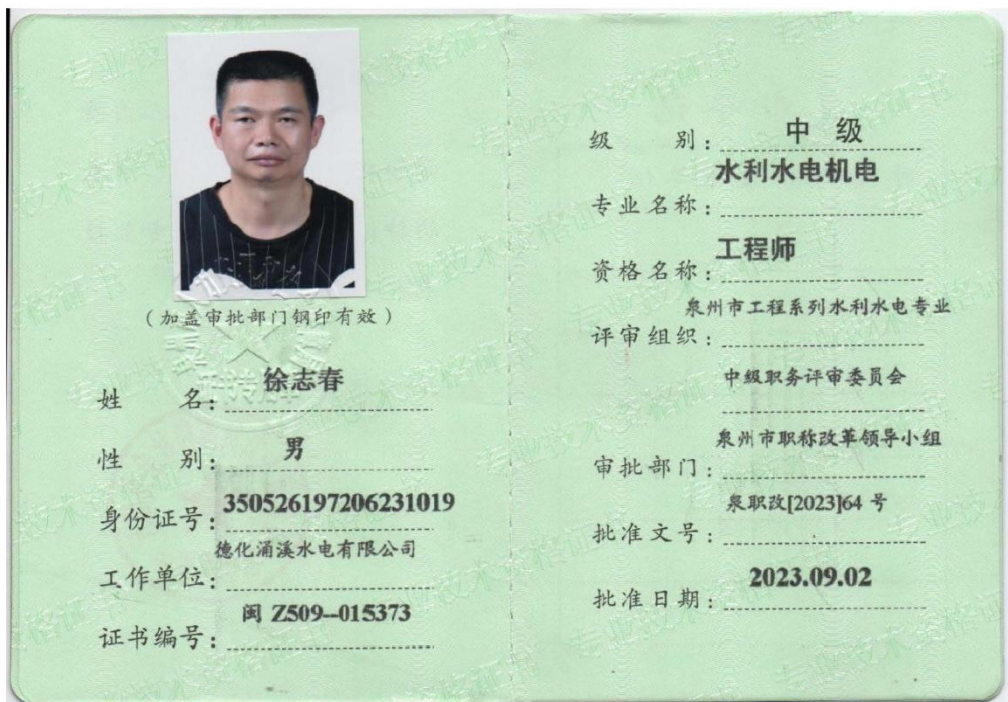 (加盖审批部门钢印有效)
姓 名: 徐志春
性 别: 男
身份证号: 350526197206231019
工作单位: 德化涌溪水电有限公司
证书编号: 闽 Z509--015373
级 别: 中 级
专业名称: 水利水电机电
资格名称: 工程师
评审组织: 泉州市工程系列水利水电专业
中级职务评审委员会
审批部门: 泉州市职称改革领导小组
批准文号: 泉职改[2023]64 号
批准日期: 2023.09.02